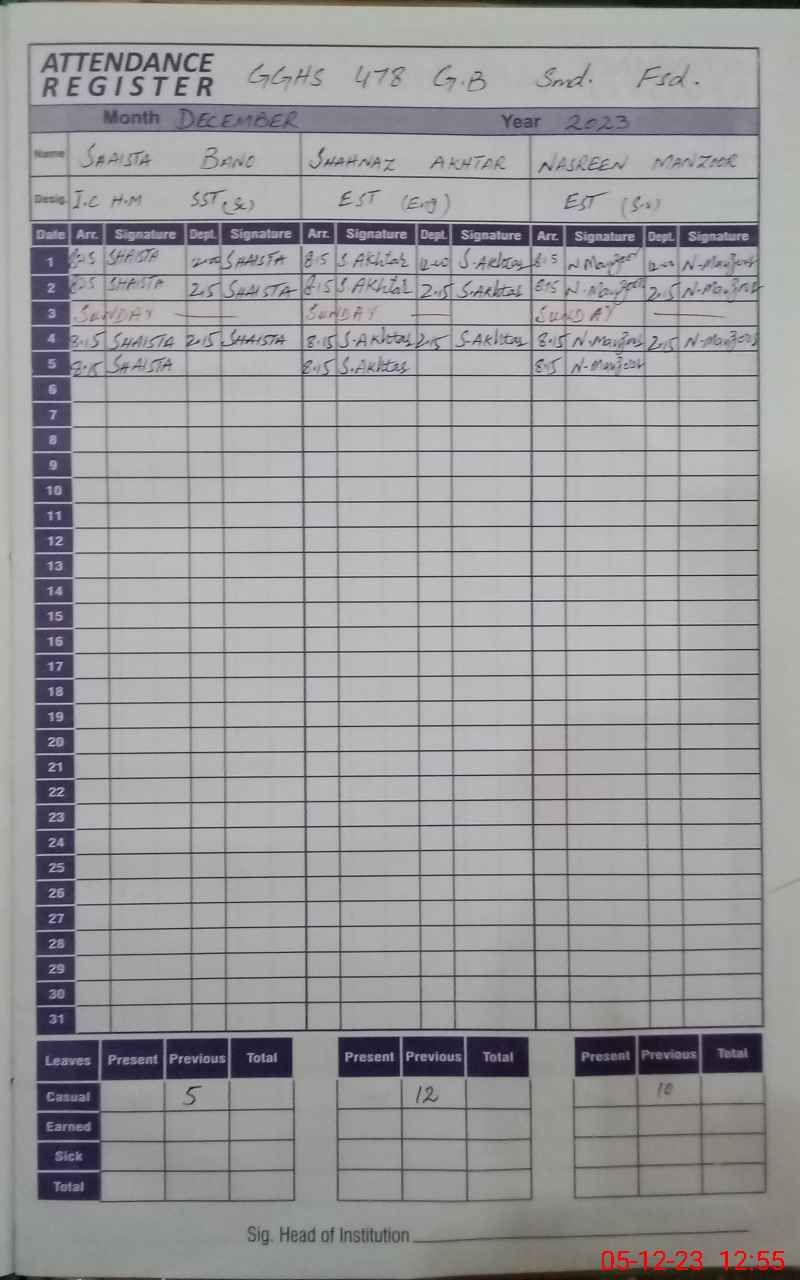 ATTENDANCE REGISTER GGHS 478 G.B Smd. Fsd.
Month DECEMBER Year 2023
Name SHAISTA BANO SHAHNAZ AKHTAR NASREEN MANZOOR
Desig. I.C H.M SST (Sc) EST (Eng) EST
Date Arr. Signature Dept. Signature Arr. Signature Dept. Signature Arr. Signature Dept. Signature
1 SHAISTA 12:00 SHAISTA 8:15 S Akhtar 12:00 S.Akhtar 8:15 N Manzoor 12:00 N-Manzoor
2 SHAISTA 2:15 SHAISTA 8:15 S Akhtar 2:15 S.Akhtar 8:15 N-Manzoor 2:15 N-Manzoor
3 SUNDAY — SUNDAY — SUNDAY —
4 8:15 SHAISTA 2:15 SHAISTA 8:15 S.Akhtar 2:15 S-Akhtar 8:15 N-Manzoor 2:15 N-Manzoor
5 8:15 SHAISTA 8:15 S.Akhtar 8:15 N-Manzoor
6
7
8
9
10
11
12
13
14
15
16
17
18
19
20
21
22
23
24
25
26
27
28
29
30
31
Leaves Present Previous Total Present Previous Total Present Previous Total
Casual 5 12 10
Earned
Sick
Total
Sig. Head of Institution
05-12-23 12:55